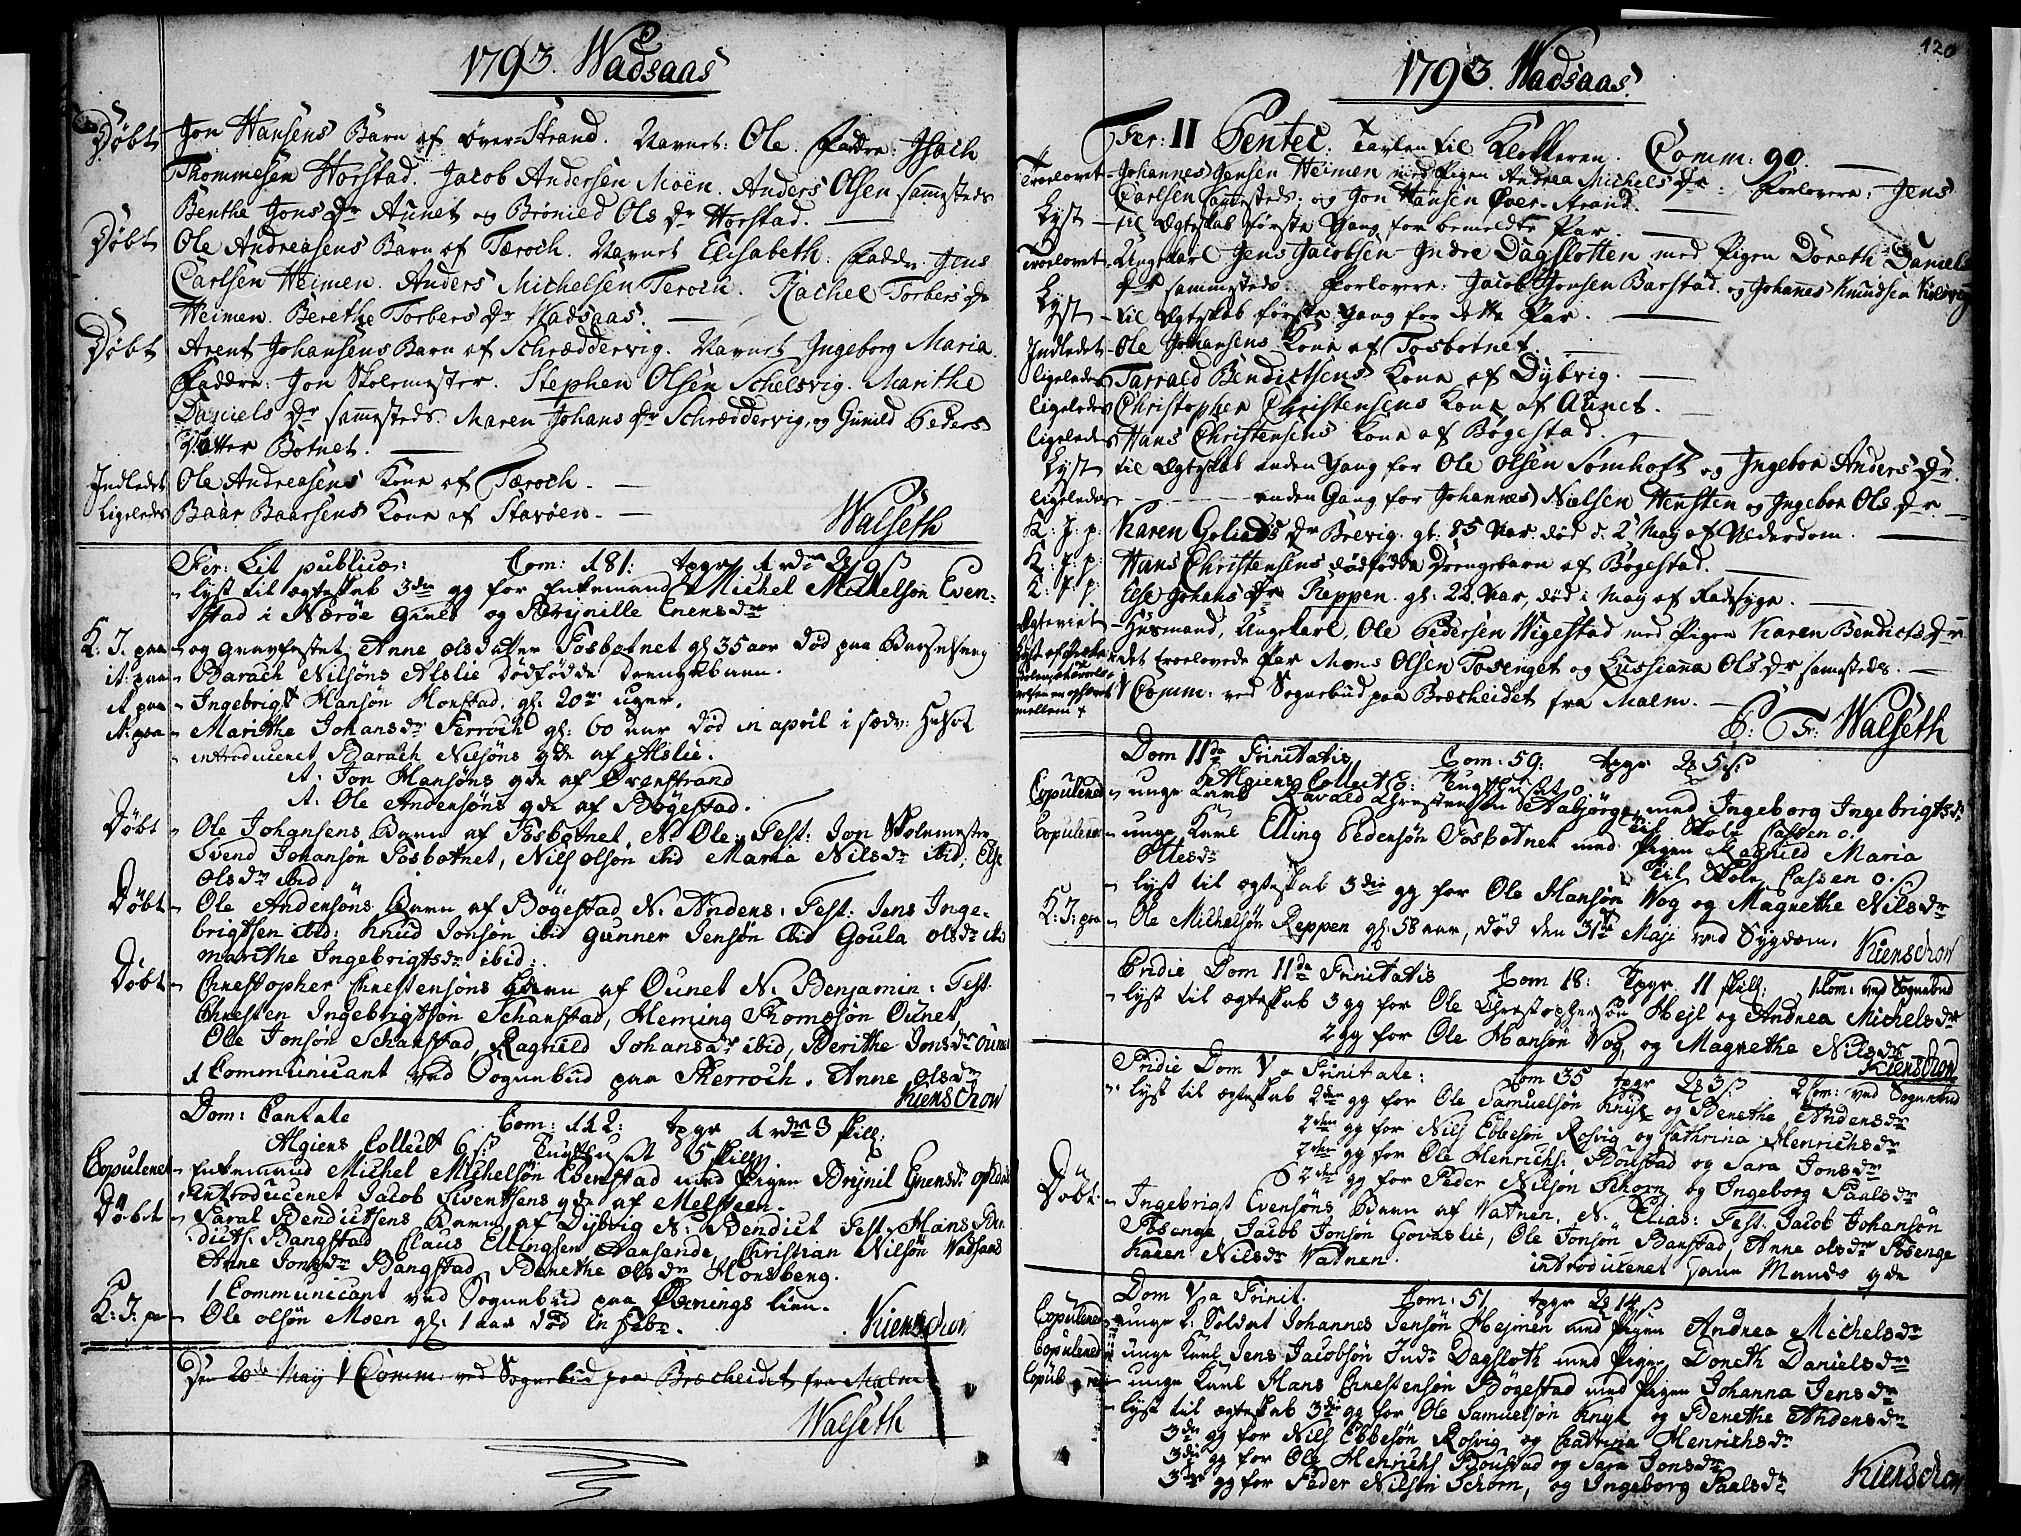 1793. Wadsaas
Døbt Jon Hansens Barn af Over-Strand. Navnet: Ole. Faddre: Isach
Thommesen Horstad. Jacob Andersen Moen. Anders Olsen sammesteds
Benthe Jons Dr Aunet og Brønild Ols Dr Horstad.
Døbt Ole Andreasens Barn af Tæroch. Navnet Elisabeth. Faddr. Jens
Carlsen Heimen. Anders Michelsen Teroch. Rachel Torbers Dr
Heimen. Berethe Torbers Dr Wadsaas.
Døbt Arent Johansens Barn af Schræddervig. Navnet Ingeborg Maria.
Faddre: Jon Skolemester. Stephen Olsen Schelsvig. Marithe
Daniels Dr sammesteds. Maren Johans Dr Schræddervig, og Gunild Peders
Datter Botnet.
Indledet Ole Andreasens Kone af Tæroch.
Ligeledes Baar Baarsens Kone af Starøen.
Walseth
Fer: Lit publicæ: Com: 181: tpgr 1 rdr 2 9 ß
lyst til ægteskab 3die gg for Enkemand Michel Michelsøn Even-
stad i Nærøe Gield og Brynille Enersdr
K: J. paa og gravfestet, Anne olsdatter Fosbotnet gl 35 aar død paa Barselseng
it: paa Barach Nilsøns Alslie dødfødde drengebarn.
it paa Ingebrigt Hansøn Honstad, gl. 20 uger.
it: paa Marithe Johansdr Ferroch gl: 60 aar død in april i sædv:
introduceret Barach Nilsøns qde af Alslie.
it: Jon Hansøns qde af Overstrand
it: Ole Andersøns qde af Bøgestad.
Døbt Ole Johansens Barn af Fosbotnet, N. Ole: Test: Jon Skolemester
Svend Johansøn Fosbotnet, Nils olsøn ibid Maria Nilsdr ibid. Else
olsdr ibid.
Døbt Ole Andersøns Barn af Bøgestad N. Anders: Test: Jens Inge-
brigtsen ibid: Knud Jonsøn ibid Gunner Jensøn ibid Goula olsdr ibid
marithe Ingebrigtsdr ibid:
Døbt Christopher Christensøns Barn af Ounet N. Benjamin: Test:
Christen Ingebrigtsøn Schanstad, Heming Thomæsøn Ounet,
Ole Jonsøn Schanstad, Ragnild Johansdr ibid, Berithe Jonsdr Ounet
1 Communicant ved Sognebud paa Therroch. Anne olsdr
Kienschow
Dom: Cantate Com: 112: tpgr 1 rdr 3 skill:
Algiers Collect 6 ß: Tugthuset 5 skill
Copuleret Enkemand Michel Michelsøn Evenstad med Pigen Brynil Enersdr
introduceret Jacob Siventsens qde af Melsteen.
Døbt Taral Bendictsens Barn af Dybvig N: Bendict Test: Hans Ben-
dicts. Bangstad Claus Ellingsen Aansande, Christian Nilsøn Vadsaas
Anne Jonsdr Bangstad, Berethe olsdr Honsberg.
1 Communicant ved Sognebud paa lien.
K: J: pa Ole olsøn Moen gl: 1 aar død in Febr.
Kienschow
Den 20de May 1 Comm. ved Sognebud paa Bræcheidet fra Malm
Walseth
120
1793. Wadsaas.
Fer: II Pentec. Tavlen til Klokkeren. Comm: 90.
Troelovet Johannes Jensen Heimen med Pigen Andrea Michels Dr. Forlovere: Jens
Carlsen sammesteds: og Jon Hansen Over-Strand.
Lyst til Ægteskab første Gang for bemeldte Par.
Troelovet Ungekarl Jens Jacobsen Indre Dagslotten med Pigen Doreth Daniels
Dr sammesteds. Forlovere: Jacob Jonsen Barstad. og Johannes Knudsen
Lyst til Ægteskab første Gang for dette Par.
Indledet Ole Johansens Kone af Fosbotnet.
ligeledes Tarrald Bendictsens Kone af Dybvig.
ligeledes Christopher Christensens Kone af Aunet.
ligeledes Hans Christensens Kone af Bøgestad.
Lyst til Ægteskab anden Gang for Ole Olsen Somhoft og Ingebor Anders Dr.
ligeledes anden Gang for Johannes Nielsen Hensten og Ingebor Ols Dr
K: J: p: Karen Goliads Dr Brevig. gl: 85 Aar død d. 2 May af Alderdom.
K: J: p: Hans Christensens dødfødde Drengebarn af Bøgestad.
K: J: p: Else Johans Dr Reppen. gl: 22 Aar, død i May af Radesyge.
Ægteviet Husmand, Ungekarl, Ole Pedersen Wigestad med Pigen Karen Bendicts Dr
det troelovede Par Mons Olsen Tosenget og Lussianna Ols Dr sammesteds.
1 Comm: ved Sognebud paa Bræcheidet fra Malm.
P: Fr: Walseth
Dom 11da Trinitatis, Com: 59: tpgr 2 5 ß:
Algiers Collect 8: Tugthuset 0.
Copuleret unge Karl Harald Christensen Aabjørg med Ingeborg Ingebrigtsdr
Til Skole Cassen 0.
Copuleret unge Karl Elling Pedersøn Fosbotnet med Pigen Magnild Maria
Ottesdr Til Skole Cassen 0.
lyst til ægteskab 3die gg for Ole Hansøn Vog og Magrethe Nilsdr
K: J: paa Ole Michelsøn Reppen gl: 58 aar, død den 31te Maji ved Sygdom.
Kienschow
Pridie Dom 11da Trinitatis Com 18: tpgr 11 skill: 1 Com: ved Sognebud
lyst til ægteskab 3 gg for Ole Christophersøn Hejl og Andrea Michelsdr
2 gg for Ole Hansøn Vog, og Magrethe Nilsdr
Kienschow
Pridie Dom V a Trinitate: Com 35 tpgr 2 3 ß 2 Com: ved Sognebud
lyst til ægteskab 2den gg for Ole Samuelsøn Knyk og Berethe Andersdr
2den gg for Nils Ebbesøn Rosvig og Cathrina Henrichsdr
2den gg for Ole Henrichs: Boustad og Sara Jonsdr
2den gg for Peder Nilsøn Schorn og Ingeborg Paalsdr
Døbt Ingebrigt Evensøns Barn af Vatnen. N. Elias: Test. Jacob Johansøn
Fosenge Jacob Jonsøn Govaslie, Ole Jonsøn Banstad, Anne olsdr Fosenge
Karen Nilsdr Vatnen. introduceret samme Mands qde
Dom V a Trinit. Com: 51 tpgr 2 14 ß
Copuleret unge k: Soldat Johannes Jensøn Hejmen med Pigen Andrea Michelsdr
Copuleret unge Karl Jens Jacobsøn Indr Dagsloth med Pigen Doreth Danielsdr
unge Karl Hans Christensøn Bøgestad med Pigen Johanna Jensdr
lyst til ægteskab 3die gg for Ole Samuelsøn Knyk og Berethe Andersdr
3die gg for Nils Ebbesøn Rosvig og Cathrina Henrichsdr
3die gg for Ole Henrichs Boustad og Sara Jonsdr
3die gg for Peder Nilsøn Schorn, og Ingeborg Paalsdr
Kienschow